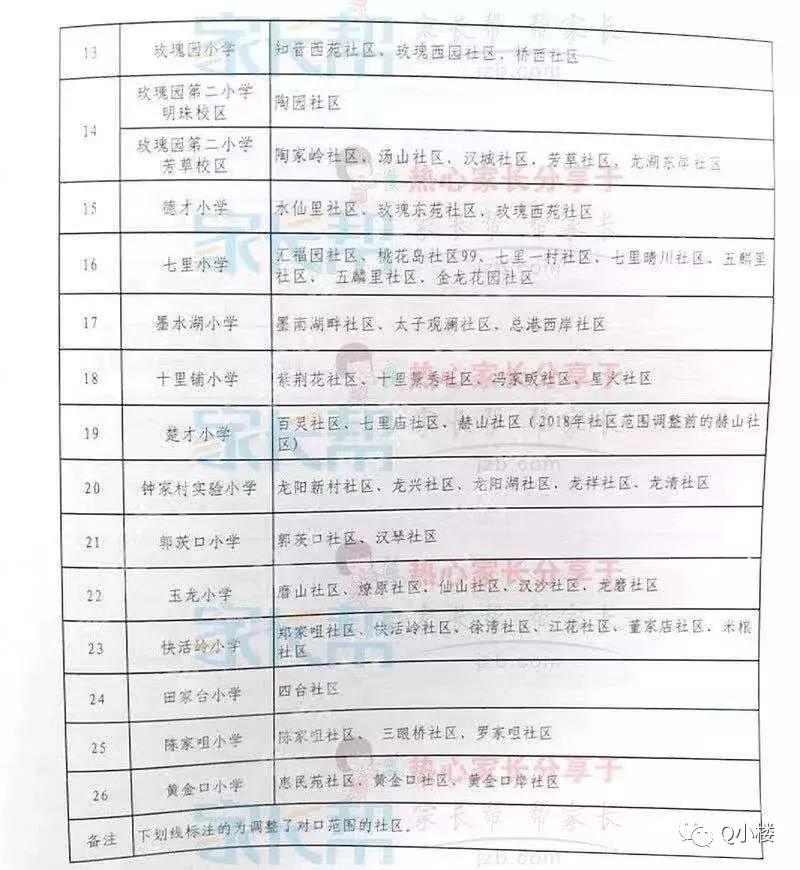 13 玫瑰园小学 知音西苑社区、玫瑰西园社区、桥西社区
14
玫瑰园第二小学
明珠校区
陶园社区
玫瑰园第二小学
芳草校区
陶家岭社区、汤山社区、汉城社区、芳草社区，龙湖东岸社区
15 德才小学 水仙里社区、玫瑰东苑社区、玫瑰西苑社区
16 七里小学
汇福园社区、桃花岛社区99、七里一村社区、七里晴川社区、五麟里
社区、 五麟里社区、金龙花园社区
17 墨水湖小学 墨南湖畔社区、太子观澜社区、总港西岸社区
18 十里铺小学 紫荆花社区、十里景秀社区、冯家畈社区、星火社区
19 楚才小学
百灵社区、七里庙社区、赫山社区(2018年社区范围调整前的赫山社
区)
20 钟家村实验小学 龙阳新村社区、龙兴社区、龙阳湖社区、龙祥社区、龙清社区
21 郭茨口小学 郭茨口社区、汉琴社区
22 玉龙小学 磨山社区、燎原社区、仙山社区、汉沙社区、龙磨社区
23 快活岭小学
郑家咀社区、快活岭社区、徐湾社区、江花社区、董家店社区、米粮
社区
24 田家台小学 四台社区
25 陈家咀小学 陈家咀社区、 三眼桥社区、罗家咀社区
26 黄金口小学 惠民苑社区、黄金口社区、黄金口岸社区
备注 下划线标注的为调整了对口范围的社区。
家长帮 帮家长
jzb.com
热心家长分享于
家长帮 帮家长
热心家长分享于
jzb.com
热心家长分享于
家长帮 帮家长
热心家长分享于
家长帮 帮家长
jzb.com
Q小楼